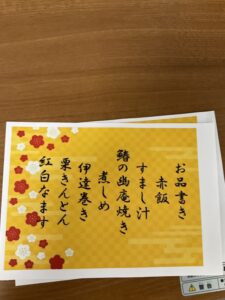 お品書き
赤飯
すまし汁
鰆の幽庵焼き
煮しめ
伊達巻き
栗きんとん
紅白なます
警告